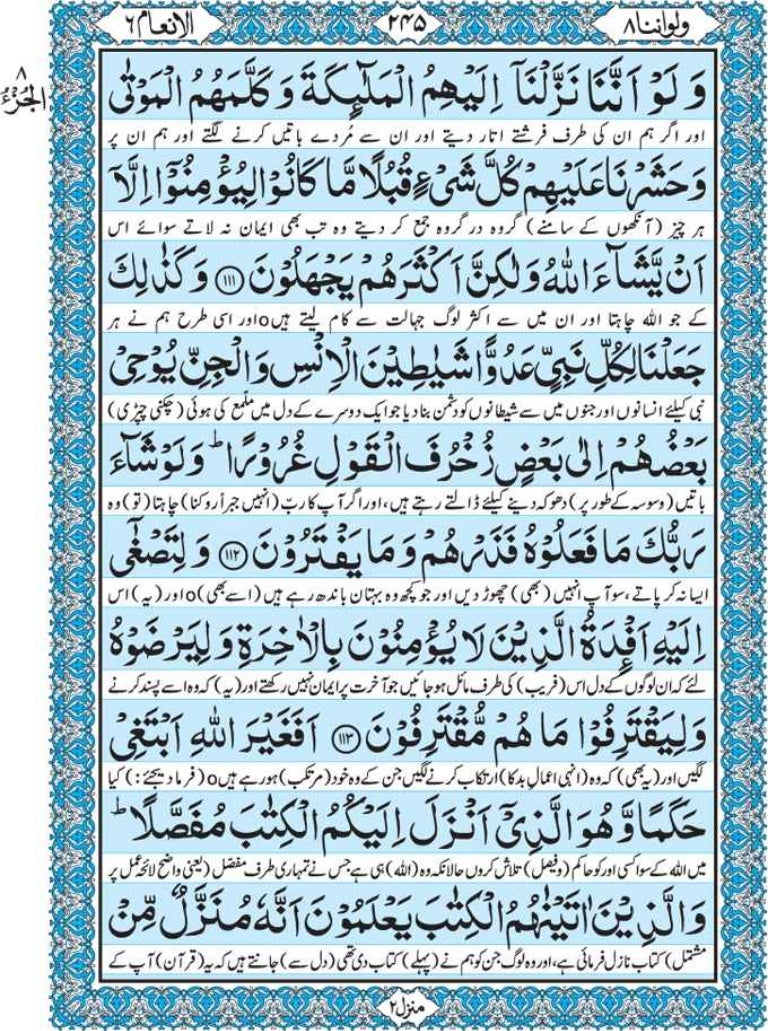 ولواننا ۸
۲۴۵
الانعام ٦
الجزء ۸
وَ لَوْ اَنَّنَا نَزَّلْنَاۤ اِلَیْهِمُ الْمَلٰٓىِٕكَةَ وَ كَلَّمَهُمُ الْمَوْتٰى
اور اگر ہم ان کی طرف فرشتے اتار دیتے اور ان سے مُردے باتیں کرنے لگتے اور ہم ان پر
وَ حَشَرْنَا عَلَیْهِمْ كُلَّ شَیْءٍ قُبُلًا مَّا كَانُوْا لِیُؤْمِنُوْۤا اِلَّاۤ
ہر چیز (آنکھوں کے سامنے) گروہ در گروہ جمع کر دیتے وہ تب بھی ایمان نہ لاتے سوائے اس
اَنْ یَّشَآءَ اللّٰهُ وَ لٰكِنَّ اَكْثَرَهُمْ یَجْهَلُوْنَ ﴿۱۱۱﴾ وَ كَذٰلِكَ
کے جو اللہ چاہتا اور ان میں سے اکثر لوگ جہالت سے کام لیتے ہیںo اور اسی طرح ہم نے ہر
جَعَلْنَا لِكُلِّ نَبِیٍّ عَدُوًّا شَیٰطِیْنَ الْاِنْسِ وَ الْجِنِّ یُوْحِیْ
نبی کیلئے انسانوں اور جنوں میں سے شیطانوں کو دشمن بنا دیا جو ایک دوسرے کے دل میں ملمّع کی ہوئی (چکنی چپڑی)
بَعْضُهُمْ اِلٰى بَعْضٍ زُخْرُفَ الْقَوْلِ غُرُوْرًا ؕ وَ لَوْ شَآءَ
باتیں (وسوسہ کے طور پر) دھوکہ دینے کیلئے ڈالتے رہتے ہیں، اور اگر آپ کا ربّ (انہیں جبراً روکنا) چاہتا (تو) وہ
رَبُّكَ مَا فَعَلُوْهُ فَذَرْهُمْ وَ مَا یَفْتَرُوْنَ ﴿۱۱۲﴾ وَ لِتَصْغٰۤى
ایسا نہ کر پاتے، سو آپ انہیں (بھی) چھوڑ دیں اور جو کچھ وہ بہتان باندھ رہے ہیں (اسے بھی)o اور (یہ) اس
اِلَیْهِ اَفْـِٕدَةُ الَّذِیْنَ لَا یُؤْمِنُوْنَ بِالْاٰخِرَةِ وَ لِیَرْضَوْهُ
لئے کہ ان لوگوں کے دل اس (فریب) کی طرف مائل ہو جائیں جو آخرت پر ایمان نہیں رکھتے اور (یہ) کہ وہ اسے پسند کرنے
وَ لِیَقْتَرِفُوْا مَا هُمْ مُّقْتَرِفُوْنَ ﴿۱۱۳﴾ اَفَغَیْرَ اللّٰهِ اَبْتَغِیْ
لگیں اور (یہ بھی) کہ وہ (انہی اعمالِ بد کا) ارتکاب کرنے لگیں جن کے وہ خود (مرتکب) ہو رہے ہیںo (فرما دیجئے:) کیا
حَكَمًا وَّ هُوَ الَّذِیْۤ اَنْزَلَ اِلَیْكُمُ الْكِتٰبَ مُفَصَّلًا ؕ
میں اللہ کے سوا کسی اور کو حاکم (و فیصل) تلاش کروں حالانکہ وہ (اللہ) ہی ہے جس نے تمہاری طرف مفصّل (یعنی واضح لائحہ عمل پر
وَ الَّذِیْنَ اٰتَیْنٰهُمُ الْكِتٰبَ یَعْلَمُوْنَ اَنَّهٗ مُنَزَّلٌ مِّنْ
مشتمل) کتاب نازل فرمائی ہے، اور وہ لوگ جن کو ہم نے (پہلے) کتاب دی تھی (دل سے) جانتے ہیں کہ یہ (قرآن) آپ کے
منزل ۲